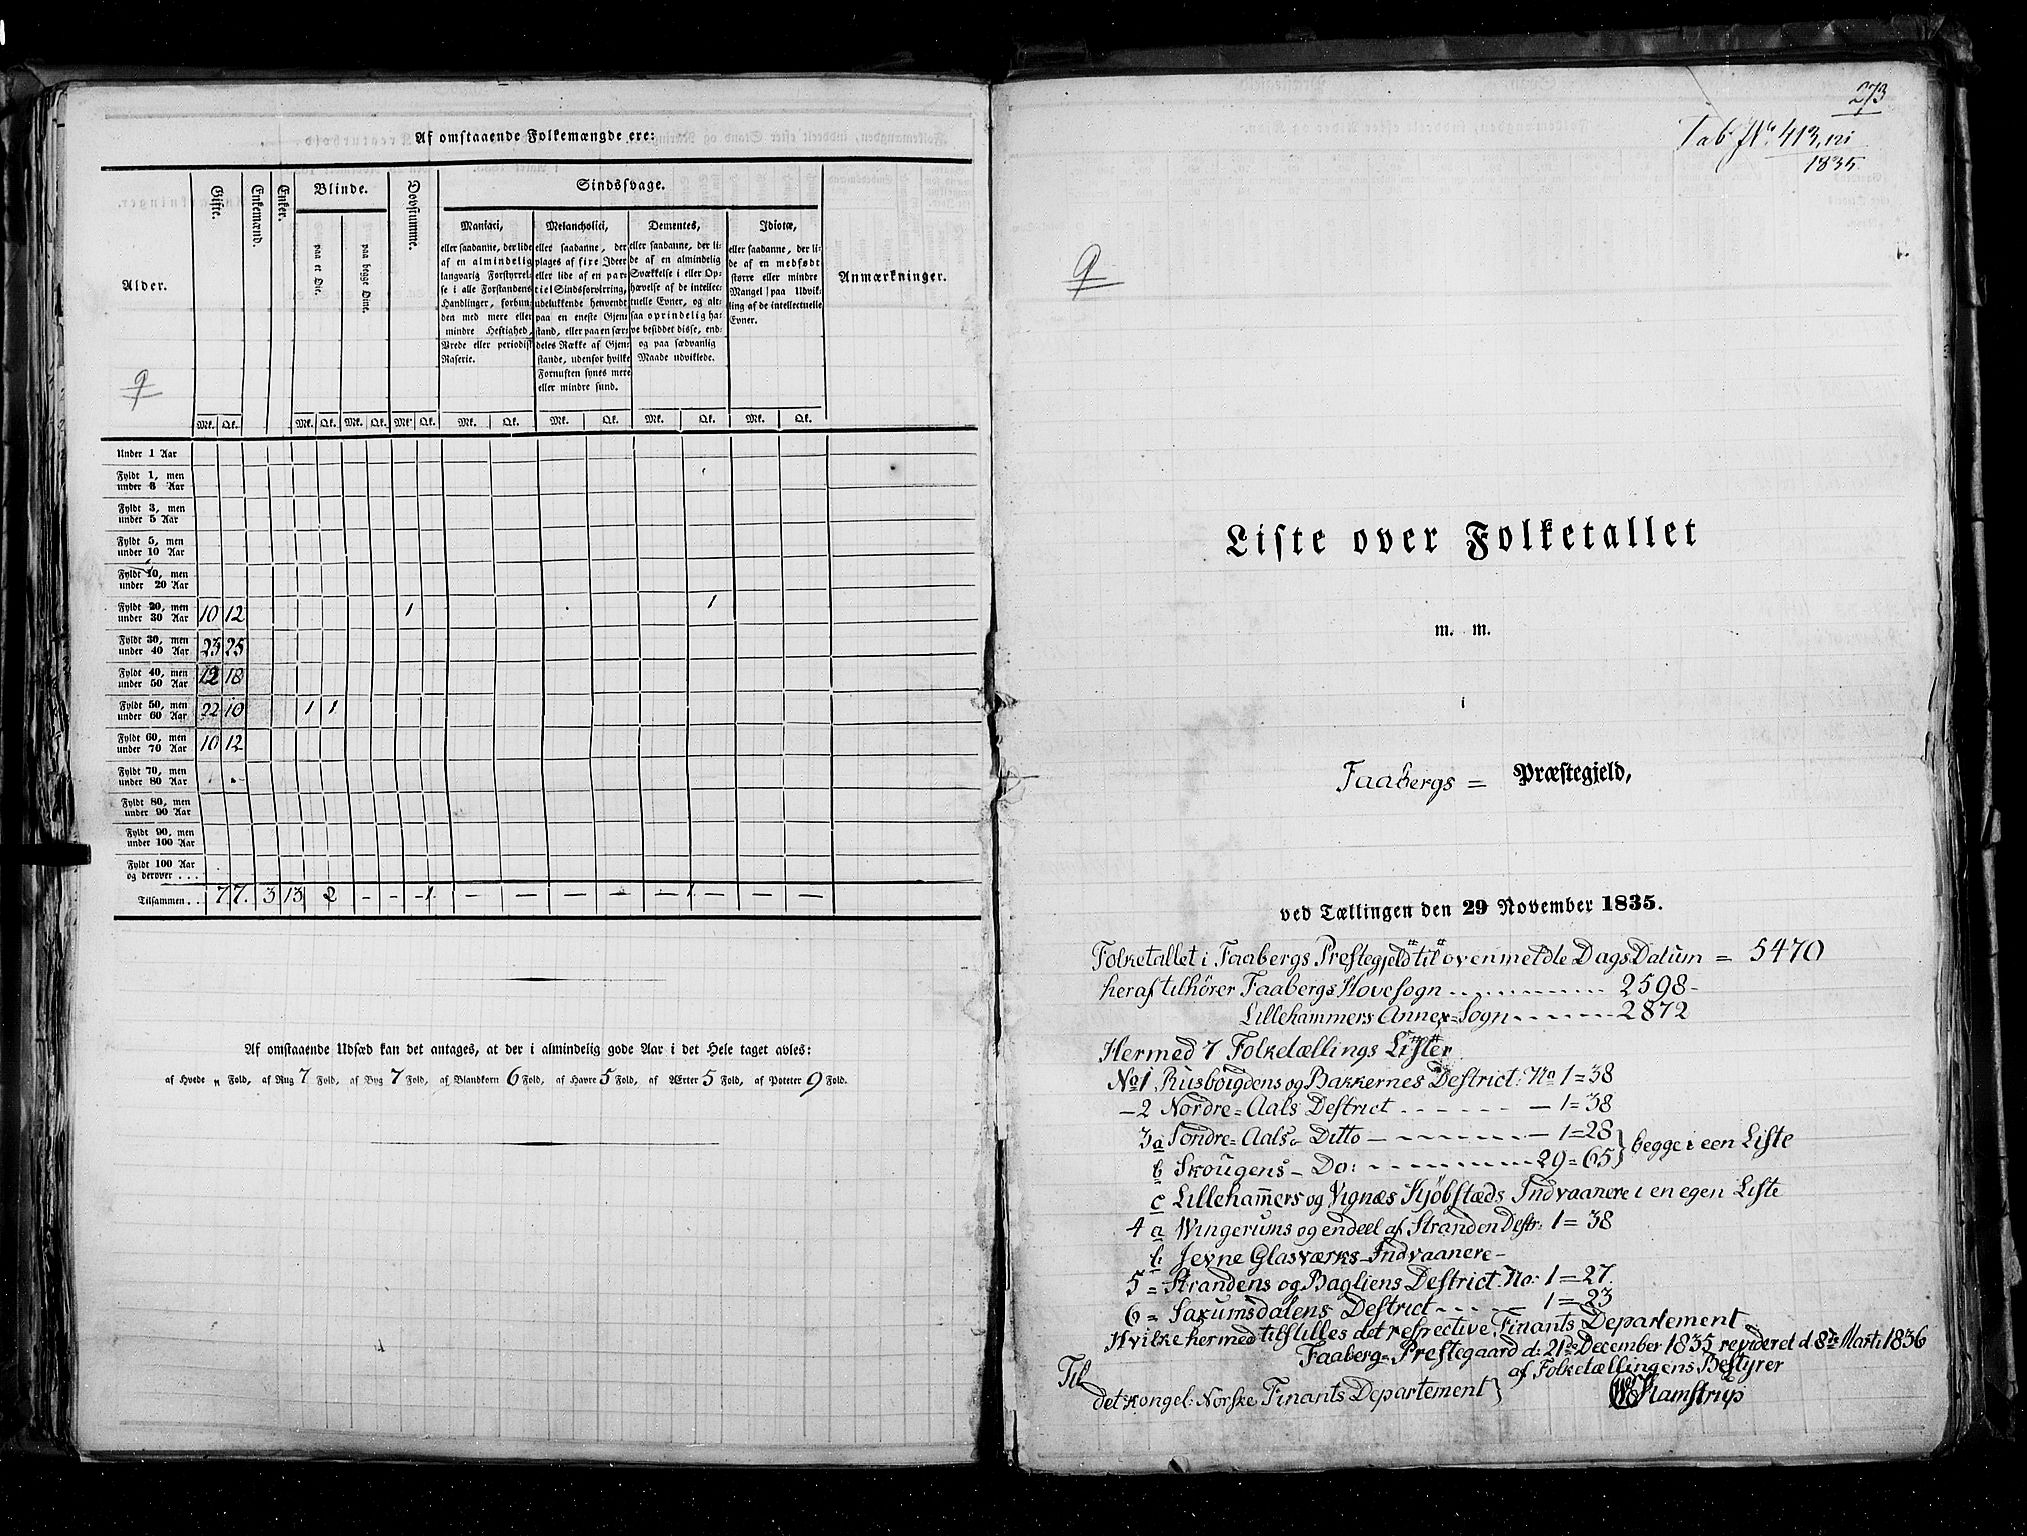 Af omstaaende Folkemængde ere:
Alder.
Gifte.
Enkemænd.
Enker.
Blinde.
paa et Øie.
paa begge Øine.
Døvstumme.
Sindssvage.
Maniaci,
eller saadanne, der lide
af en almindelig
langvarig Forstyrrel-
se i alle Forstandens
Handlinger, forbun-
den med mere eller
mindre Heftighed,
Vrede eller periodisk
Raserie.
Melancholici,
eller saadanne, der
plages af fixe Ideer
eller lide af en par-
tiel Sindsforvirring,
udelukkende henvendt
paa en eneste Gjen-
stand, eller paa en sær-
deles Række af Gjen-
stande, udenfor hvilke
Fornuften synes mere
eller mindre sund.
Dementes,
eller saadanne, der li-
de af en almindelig
Svækkelse i eller Op-
hævelse af de intellec-
tuelle Evner, og alt-
saa oprindelig ha-
ve besiddet disse, end-
og paa sædvanlig
Maade udviklede.
Idiotæ,
eller saadanne, der li-
de af en medfødt
større eller mindre
Mangel paa Udvik-
ling af de intellectuelle
Evner.
Anmærkninger.
9
Mk. Qk. Mk. Qk. Mk. Qk. Mk. Qk. Mk. Qk. Mk. Qk. Mk. Qk. Mk. Qk.
Under 1 Aar
Fyldt 1, men
under 3 Aar
Fyldt 3, men
under 5 Aar
Fyldt 5, men
under 10 Aar
Fyldt 10, men
under 20 Aar
Fyldt 20, men
under 30 Aar 10 12 1 1
Fyldt 30, men
under 40 Aar 23 25
Fyldt 40, men
under 50 Aar 12 18
Fyldt 50, men
under 60 Aar 22 10 1 1
Fyldt 60, men
under 70 Aar 10 12
Fyldt 70, men
under 80 Aar
Fyldt 80, men
under 90 Aar
Fyldt 90, men
under 100 Aar
Fyldt 100 Aar
og derover . . .
Tilsammen . . 77. 3 13 2 - - - 1. — — — — — 1. — — —
Af omstaaende Udsæd kan det antages, at der i almindelig gode Aar i det Hele taget avles:
af Hvede " Fold, af Rug 7 Fold, af Byg 7 Fold, af Blandkorn 6 Fold, af Havre 5 Fold, af Ærter 5 Fold, af Poteter 9 Fold.
273
Tab No. 413, ni
1835.
9
Liste over Folketallet
m. m.
i
Faabergs = Præstegjeld,
ved Tællingen den 29 November 1835.
Folketallet i Faabergs Prestegjeld til ovenmeldte Dags Datum = 5470
heraf tilhörer Faabergs Hovesogn . . . . . . 2598-
Lillehammers Annex-Sogn . . . . . . 2872
Hermed 7 Folketællings Lister
No 1 Rusböigdens og Bakkernes Destrict: No 1=38
- 2 Nordre=Aals Destrict . . . . . . — 1=38
3 a Söndre=Aals- Ditto — . . . . . . — 1=28 } begge i een Liste
b Skougens- Do: . . . . . . 29=65
c Lillehammers og Vignæs Kjöbstæds Indvaanere i en egen Liste
4 a Wingerums og endeel af Stranden Destr: 1=38
b: Jevne Glasværks-Indvaanere-
5 = Strandens og Bagliens Destrict. No: 1=27.
6 = Saxumsdalens Destrict . . . . . — 1=23
Hvilke hermed tilstilles det respective Finants Departement
Faaberg=Prestegaard d: 21de December 1835 revideret d. 8de Marti 1836
af Folketællingens Bestyrer
Til
det kongel: Norske Finants Departement}
Stamstrup